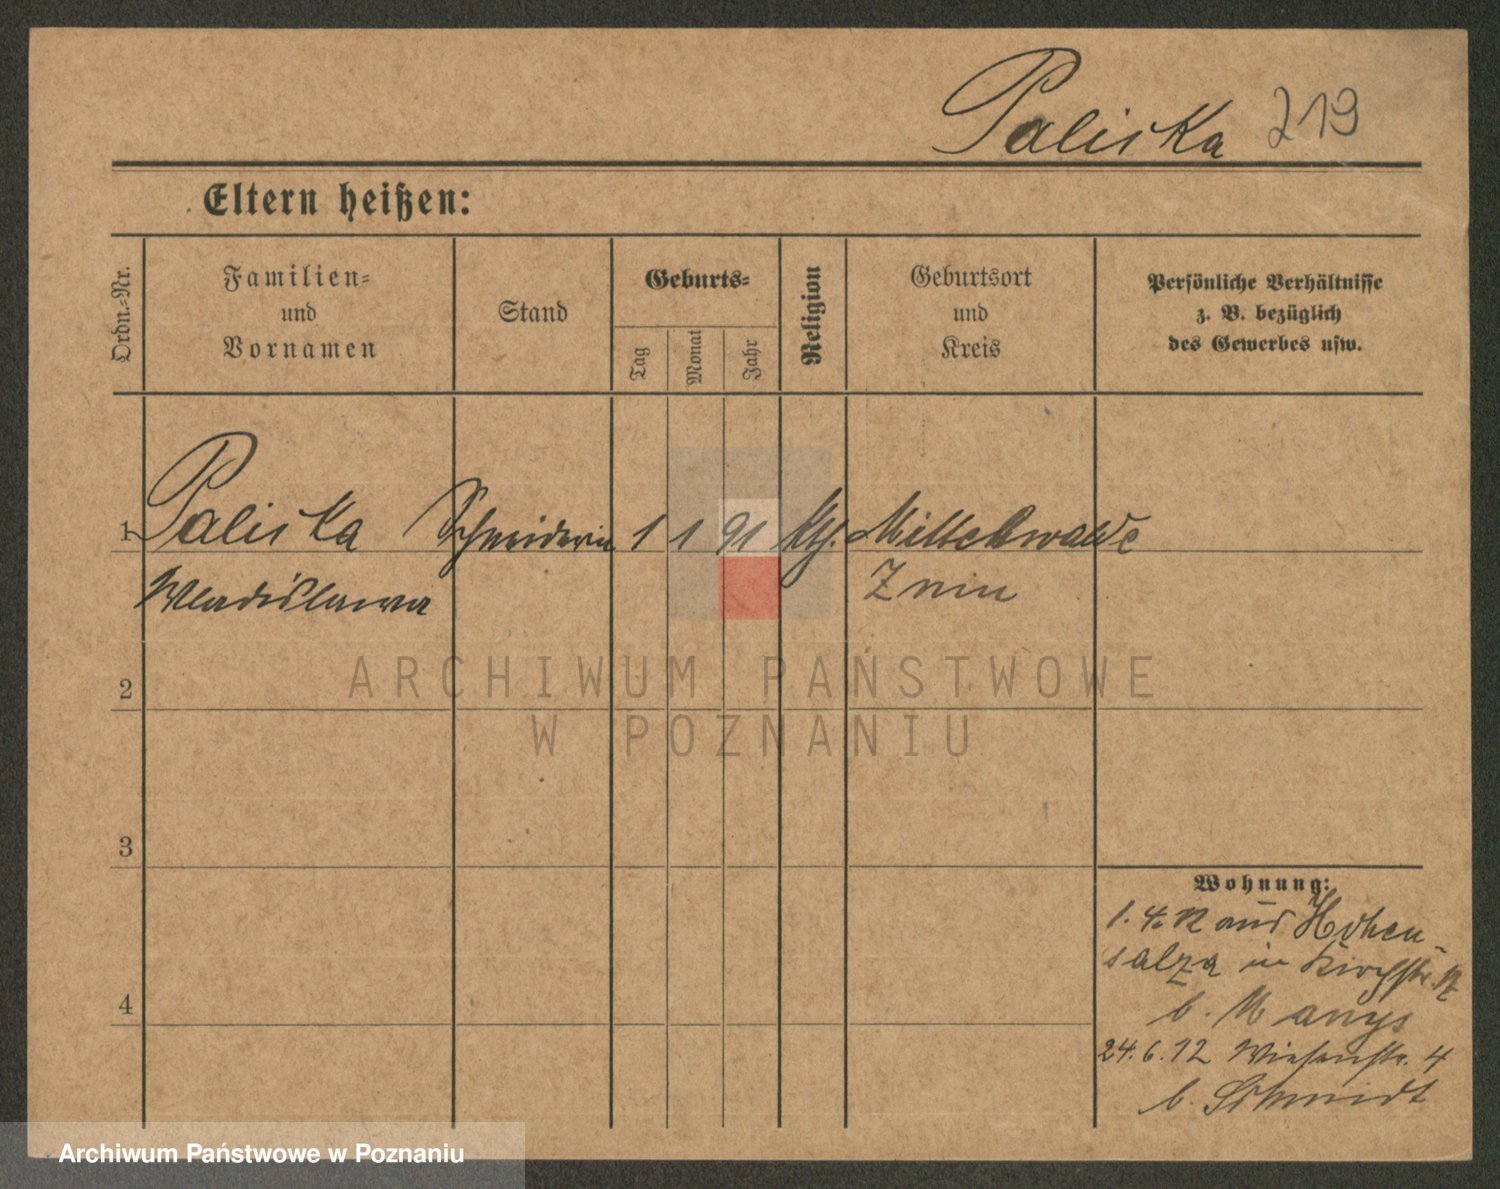 Paliska 219
Eltern heißen:
Ordn.-Nr.
Familien-
und
Vornamen
Stand
Geburts-
Tag
Monat
Jahr
Religion
Geburtsort
und
Kreis
Persönliche Verhältnisse
z. B. bezüglich
des Gewerbes usw.
1 Paliska Schneiderin 1 1 91 kth. Mittelwalde
Wladislawa Znin
2
3
4
Wohnung:
1. 4. 12 aus Hohen-
salza in Kirchstr.
b.
24. 6. 12 Wiesenstr. 4
b. Schmidt
ARCHIWUM PAŃSTWOWE
W POZNANIU
Archiwum Państwowe w Poznaniu